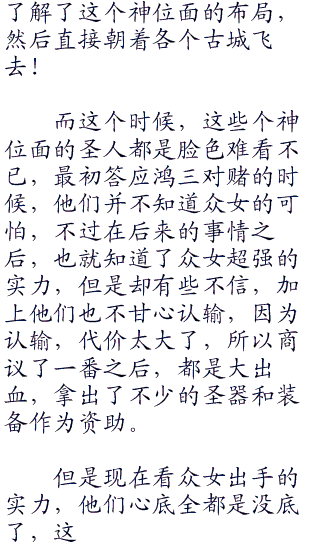 了解了这个神位面的布局，
然后直接朝着各个古城飞
去！
而这个时候，这些个神
位面的圣人都是脸色难看不
已，最初答应鸿三对赌的时
候，他们并不知道众女的可
怕，不过在后来的事情之
后，也就知道了众女超强的
实力，但是却有些不信，加
上他们也不甘心认输，因为
认输，代价太大了，所以商
议了一番之后，都是大出
血，拿出了不少的圣器和装
备作为资助。
但是现在看众女出手的
实力，他们心底全都是没底
了，这